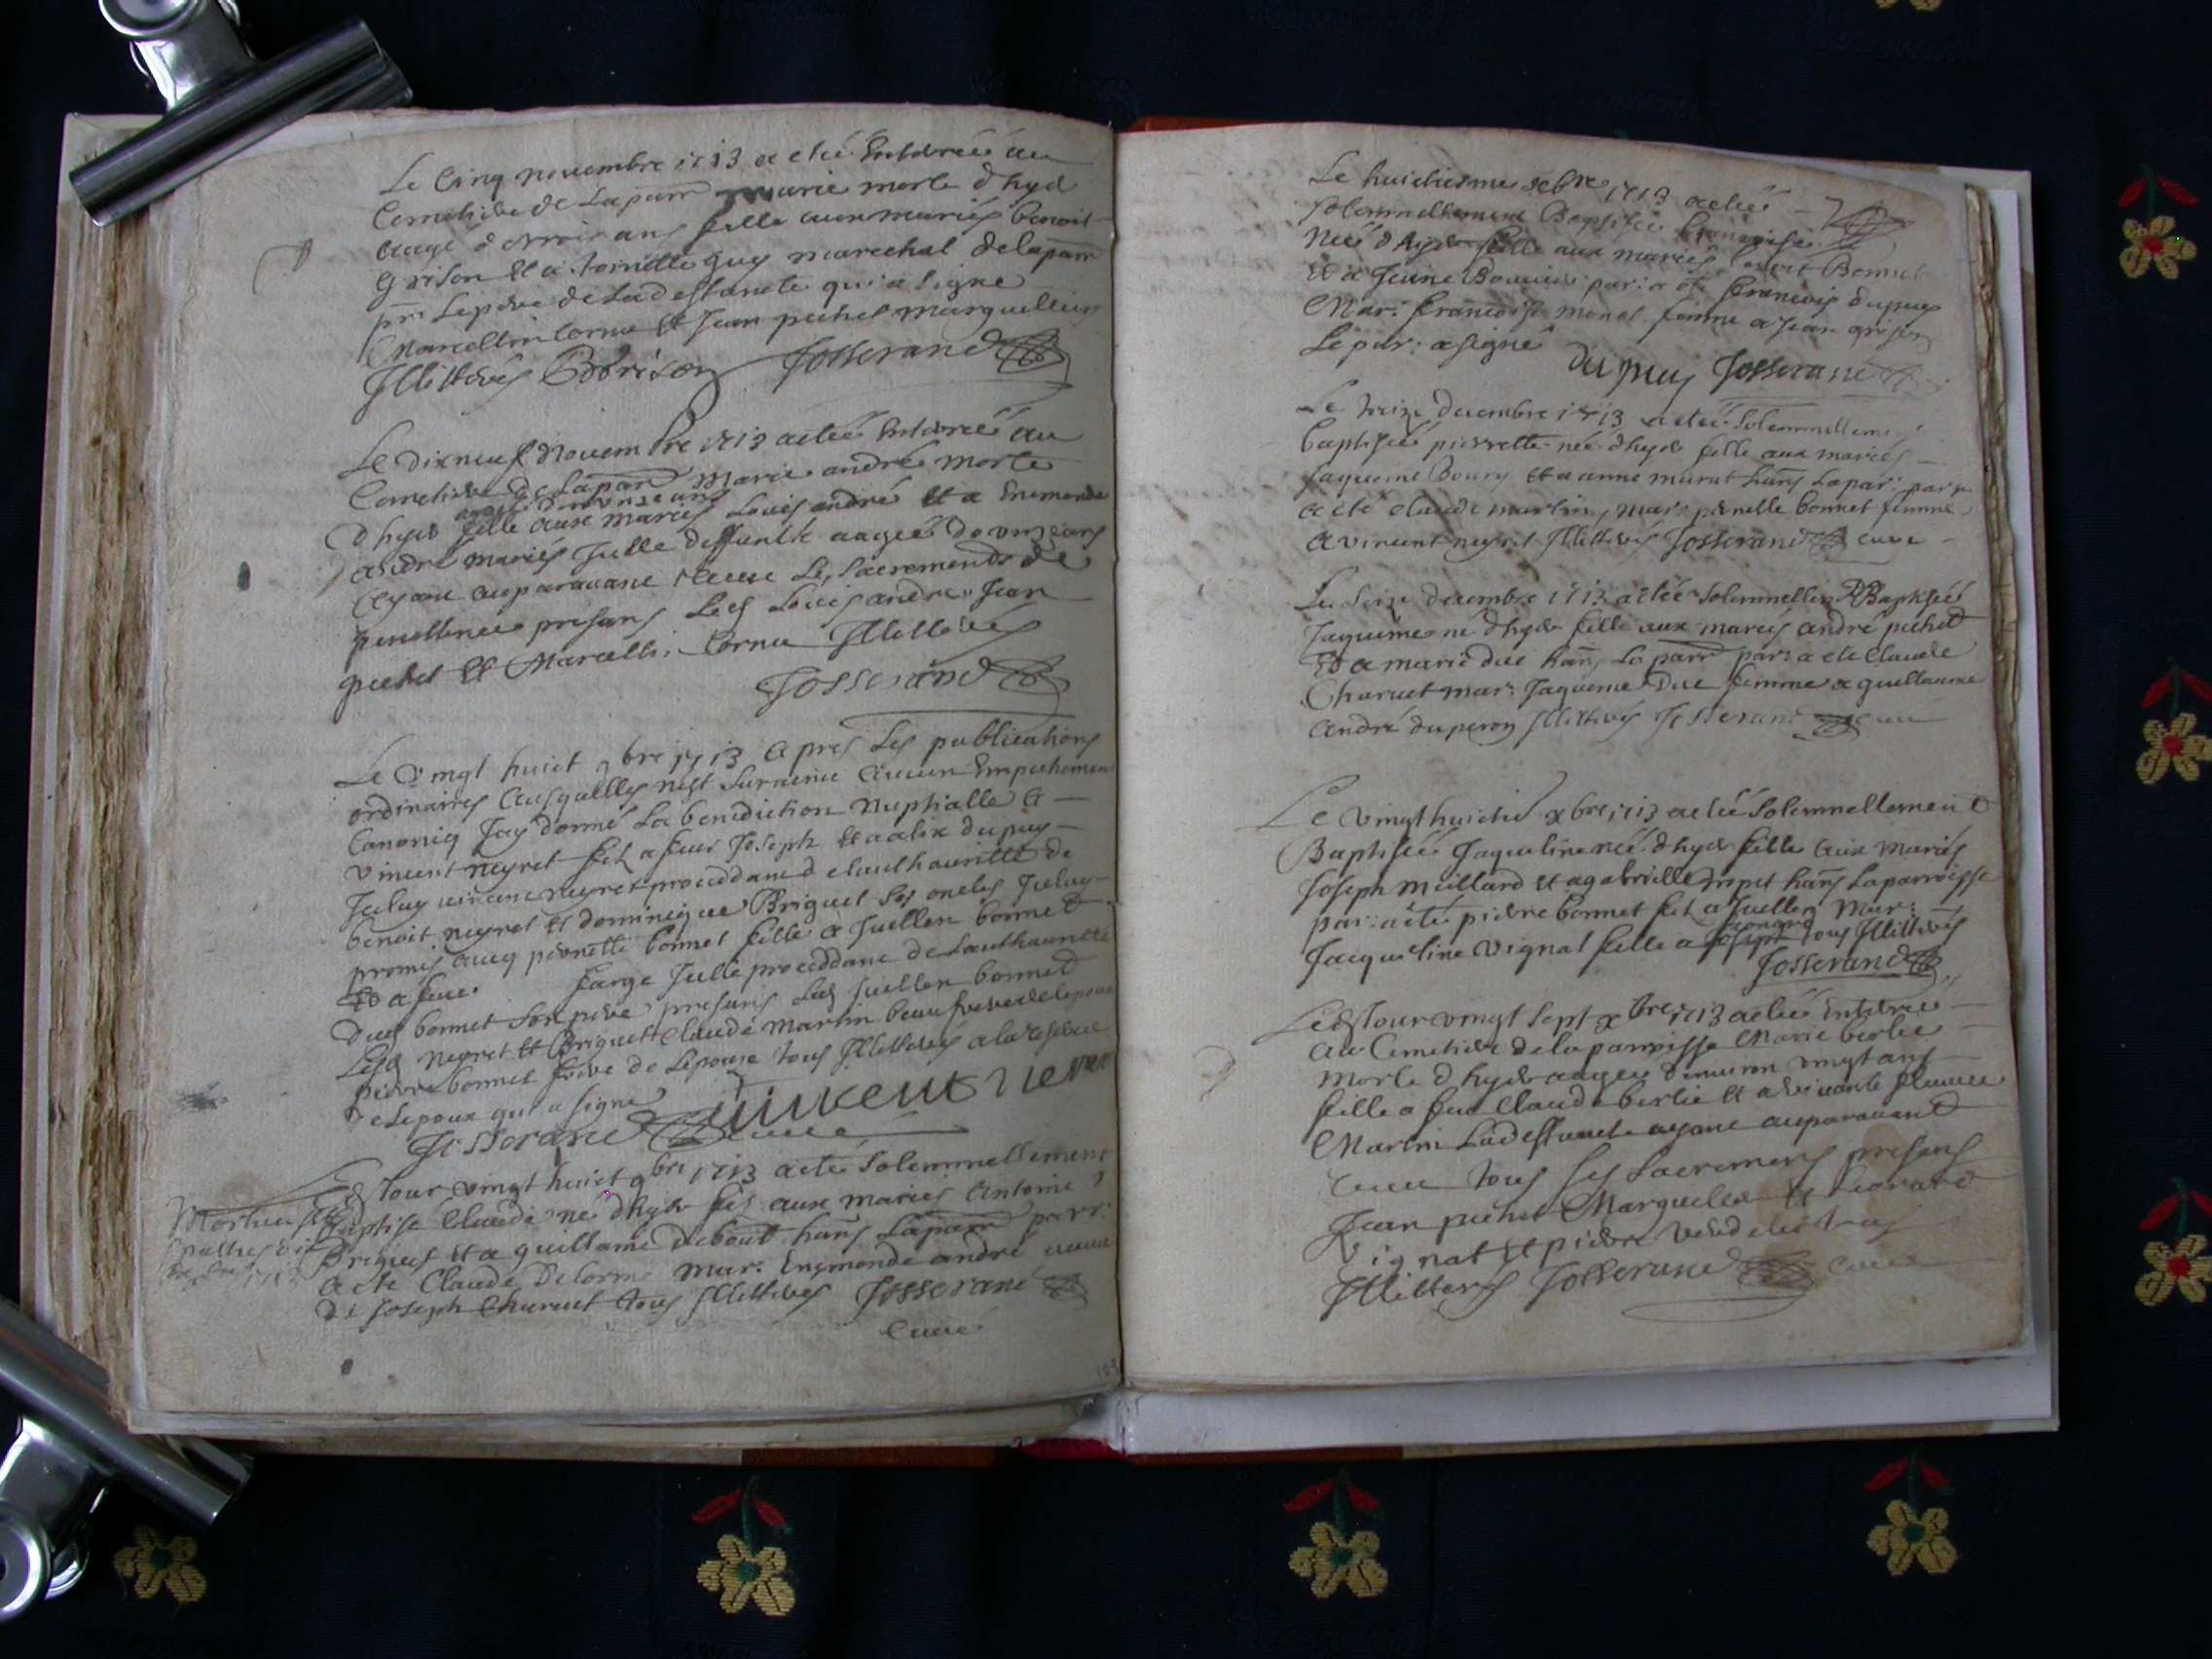 Le Cinq novembre 1713 a eté Enterreé au
Cemetiere de La parr Marie morte d'hyer
aageé d ans fille aux mariés benoit
grison et a toinette guy marechal de la parr
pns Le pere de La deffuncte qui a signé
Marcellin Cornu et Jean pichet marguelliers
Illitterés B Grison Josserand
Le dix neuf Novembre 1713 a eteé Enterreé au
Cemetiere de La parr Marie andré morte
d'hyer fille aux mariés Louis andré et a Enemonde
andré mariés Icelle deffuncte aageé de ans
Ayant auparavant receue Les Sacrements de
penittence presans Led Louis andre Jean
pichet et Marcellin Cornu Illitterés
Josserand
Le vingt huict 9bre 1713 apres Les publications
ordinaires ausquelles n'est Survenu aucun Empechement
Canonicq J'ay donné La benediction Nuptialle a
vincent neyret filz a feus Joseph et a alix dupuy
Iceluy vincent neyret proceddant d'authauritté de
benoit neyret et dominique Briguet Ses oncles Iceluy
promis avecq pernette bonnet fille a Juillen bonnet
et a feue farge Icelle proceddant de L'authauritté
dud bonnet Son pere presans Led Juillen bonnet
Lesd Neyret et Briguet Claude Martin beau frere de lepouse
pierre bonnet frere de Lepouse tous Illitterés a la reserve
de Lepoux qui a signé Vincent Neyret
Josserand Curé
Led Jour vingt huict 9bre 1713 a eté Solemnellement
Baptisé Claude né d'hyer filz aux mariés Antoine
Briguet et a guillame debout hans La parr parr:
a eté Claude Delorme mar: Enemonde andré veuve
de Joseph Charuet tous Illitterés Josserand
Curé
Le huictiesme xbre 1713 a eteé
Solemnellement Baptiseé françoise
Neé d'hyer fille aux mariés Bonnet
et a Jeanne par: a eté francois dupuy
Mar: francoise monat femme a Jean grison
Le par: a signé dupuy Josserand
Le treize decembre 1713 a eteé Solemnellement
baptiseé pierrette née d'hyer fille aux mariés
Jaqueme Boury et a anne murut hans La par: par:
a eté claude martin, mar: pernette bonnet femme
a vincent neyret Illitterés Josserand Curé
Le Seize decembre 1713 a eteé Solemnellemt Baptiseé
Jaqueme né d'hyer fille aux mariés andré pichet
et a marie duc hans La parr par: a eté Claude
Charuet mar: Jaqueme Duc femme a guillaume
andré du peron Illitterés Josserand curé
Le vingt huictie xbre 1713 a eteé Solemnellement
Baptiseé Jaqueline neé d'hyer fille aux mariés
Joseph Meillard et a gabrielle hans La parroisse
par: a eté pierre bonnet filz a Juillen Mar:
Jacqueline vignal fille a Leonard tous Illitterés
Josserand
Led Jour vingt Sept xbre 1713 a eteé Enterreé
au Cemetiere de la parroisse Marie berlie
morte d'hyer aageé d'environ vingt ans
fille a feu Claude berlie et a vivante fleurie
Martin Lad deffuncte ayant auparavant
receue tous Les Sacremens presans
Jean pichet Marguellier et Leonard
vignal et pierre tous
Illitterés Josserand curé